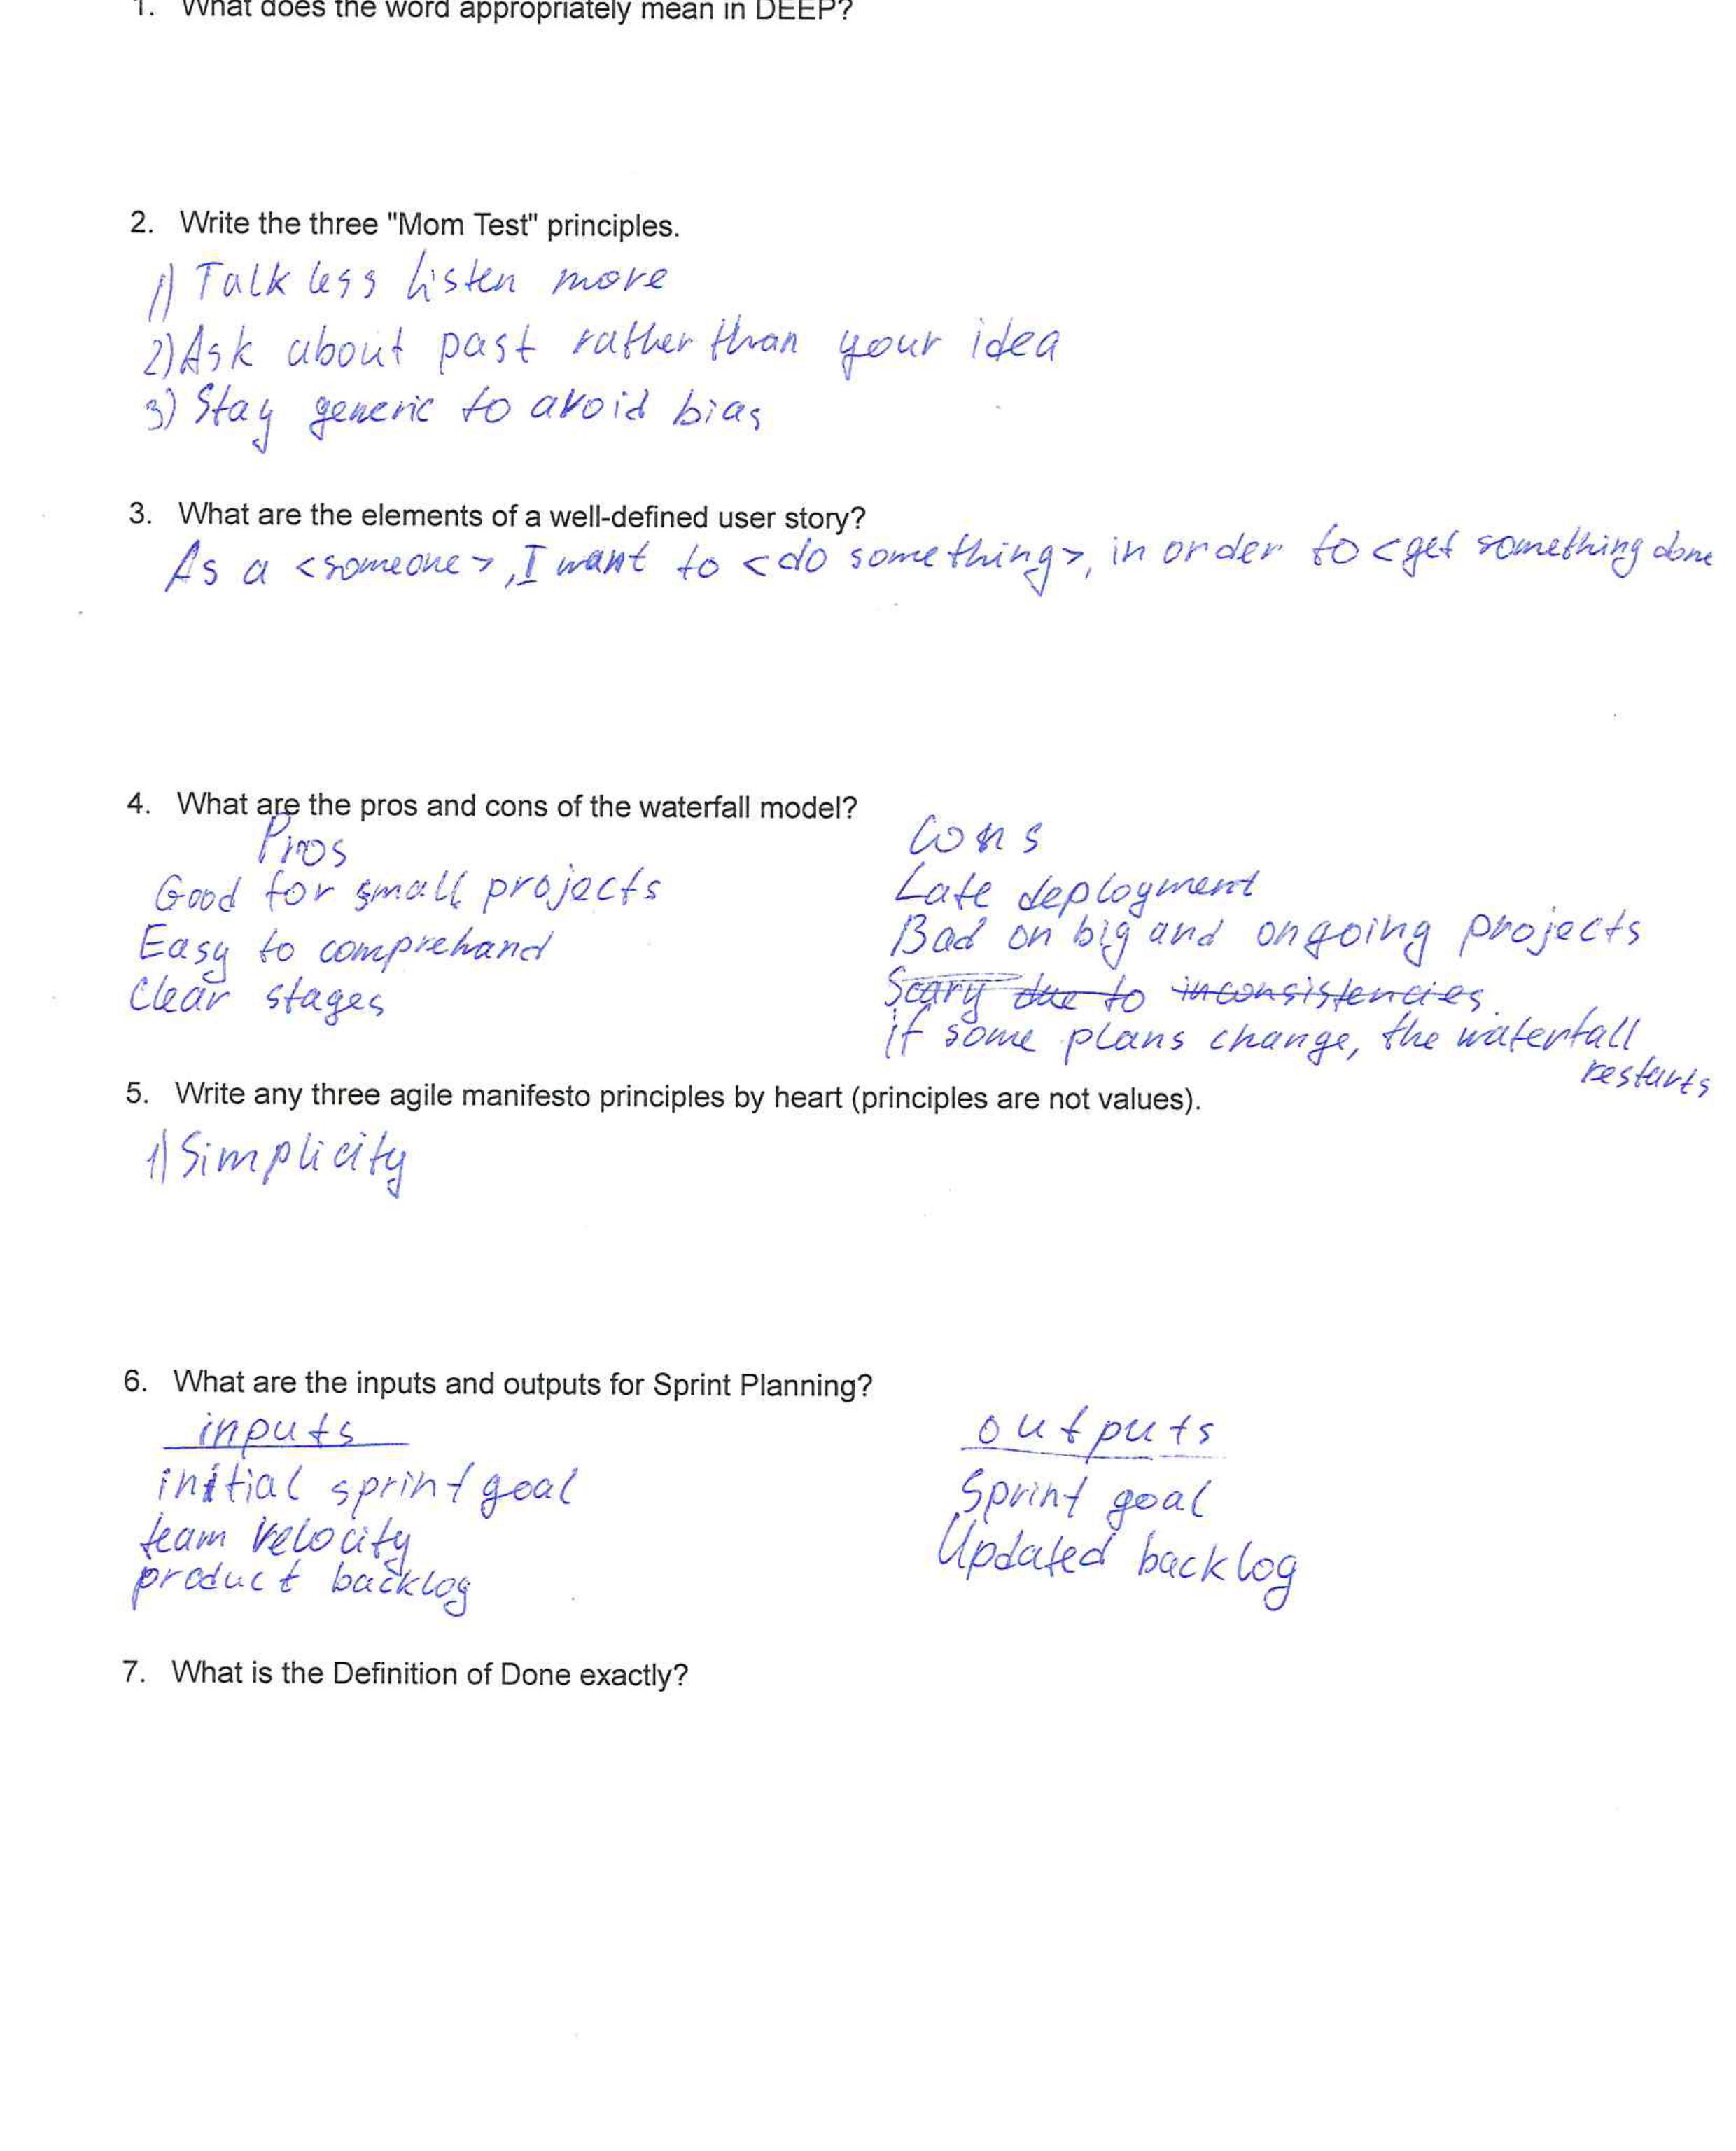 1. What does the word appropriately mean in DEEP?
2. Write the three "Mom Test" principles.
1) Talk less listen more
2) Ask about past rather than your idea
3) Stay generic to avoid bias
3. What are the elements of a well-defined user story?
As a <someone>, I want to <do something>, in order to <get something done
4. What are the pros and cons of the waterfall model?
Pros
Good for small projects
Easy to comprehand
Clear stages
Cons
Late deployment
Bad on big and ongoing projects
Scary due to inconsistencies
if some plans change, the waterfall
restarts
5. Write any three agile manifesto principles by heart (principles are not values).
1) Simplicity
6. What are the inputs and outputs for Sprint Planning?
inputs
initial sprint goal
team velocity
product backlog
outputs
Sprint goal
Updated backlog
7. What is the Definition of Done exactly?